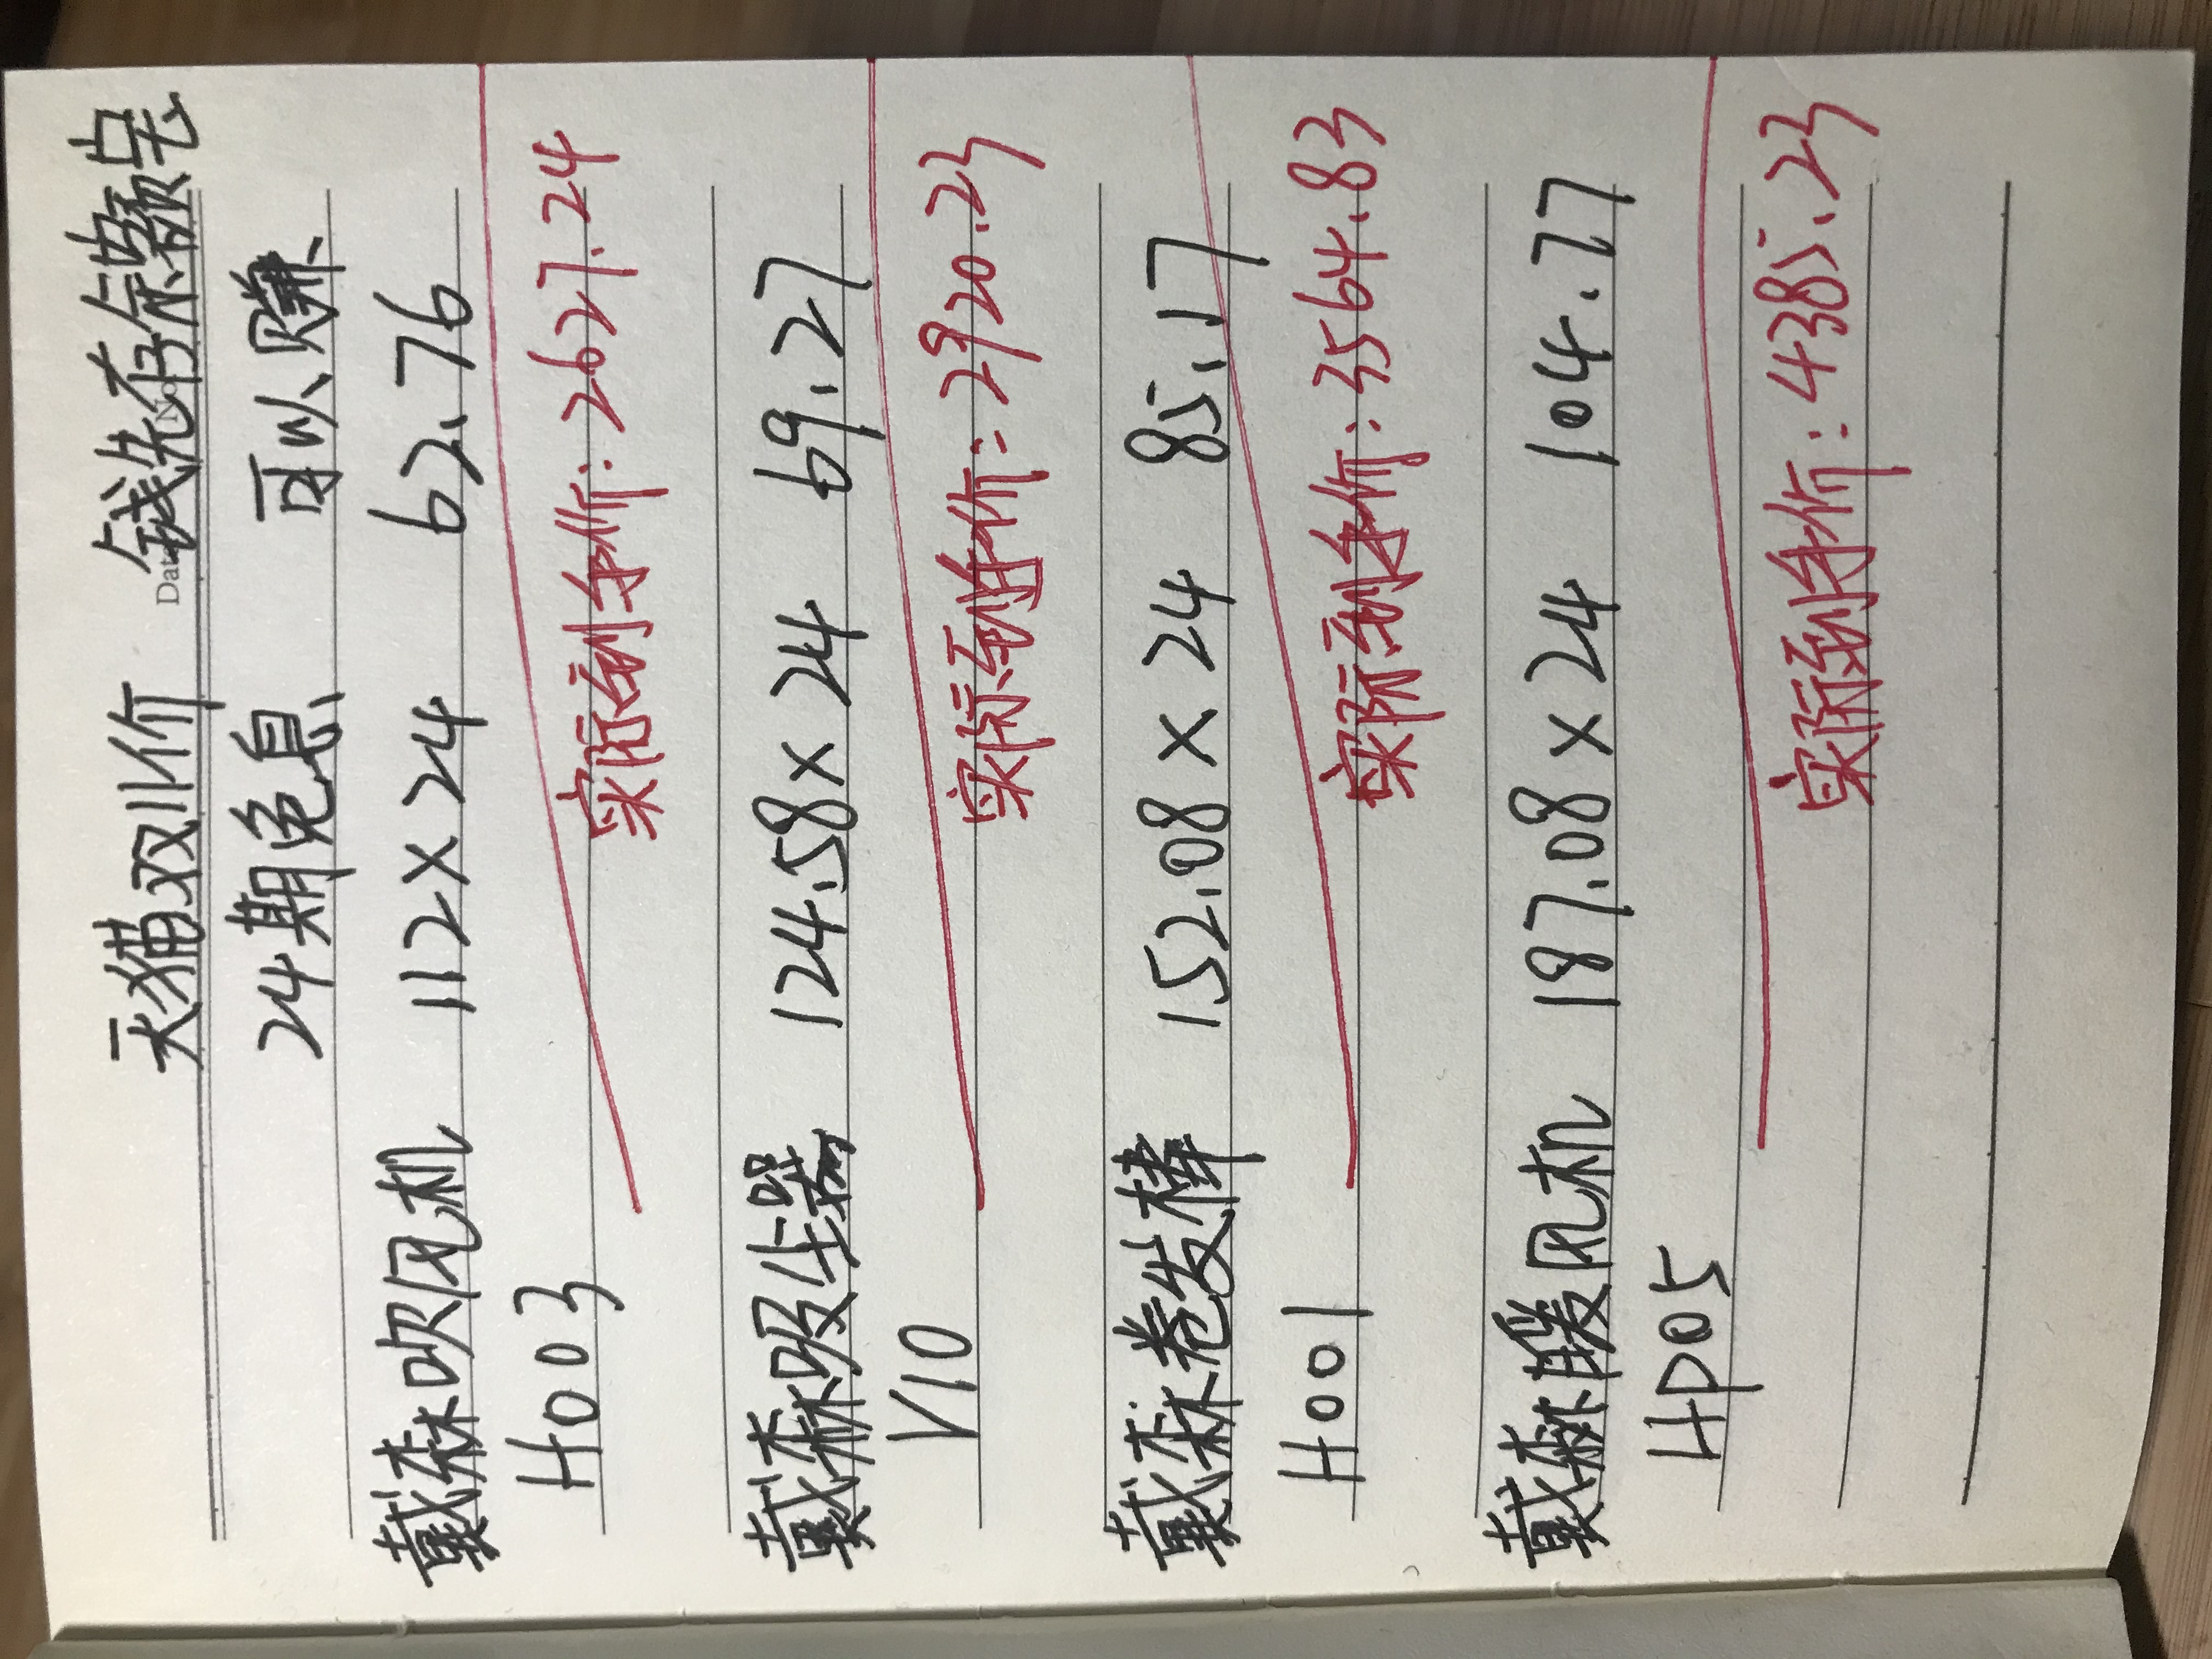 天猫双11价 钱先存余额宝
24期免息 可以赚
戴森吹风机 112×24 62.76
H003 实际到手价:2627.24
戴森吸尘器 124.58×24 69.27
V10 实际到手价:2920.23
戴森卷发棒 152.08×24 85.17
H001 实际到手价:3564.83
戴森暖风机 187.08×24 104.77
HP05 实际到手价:4385.23